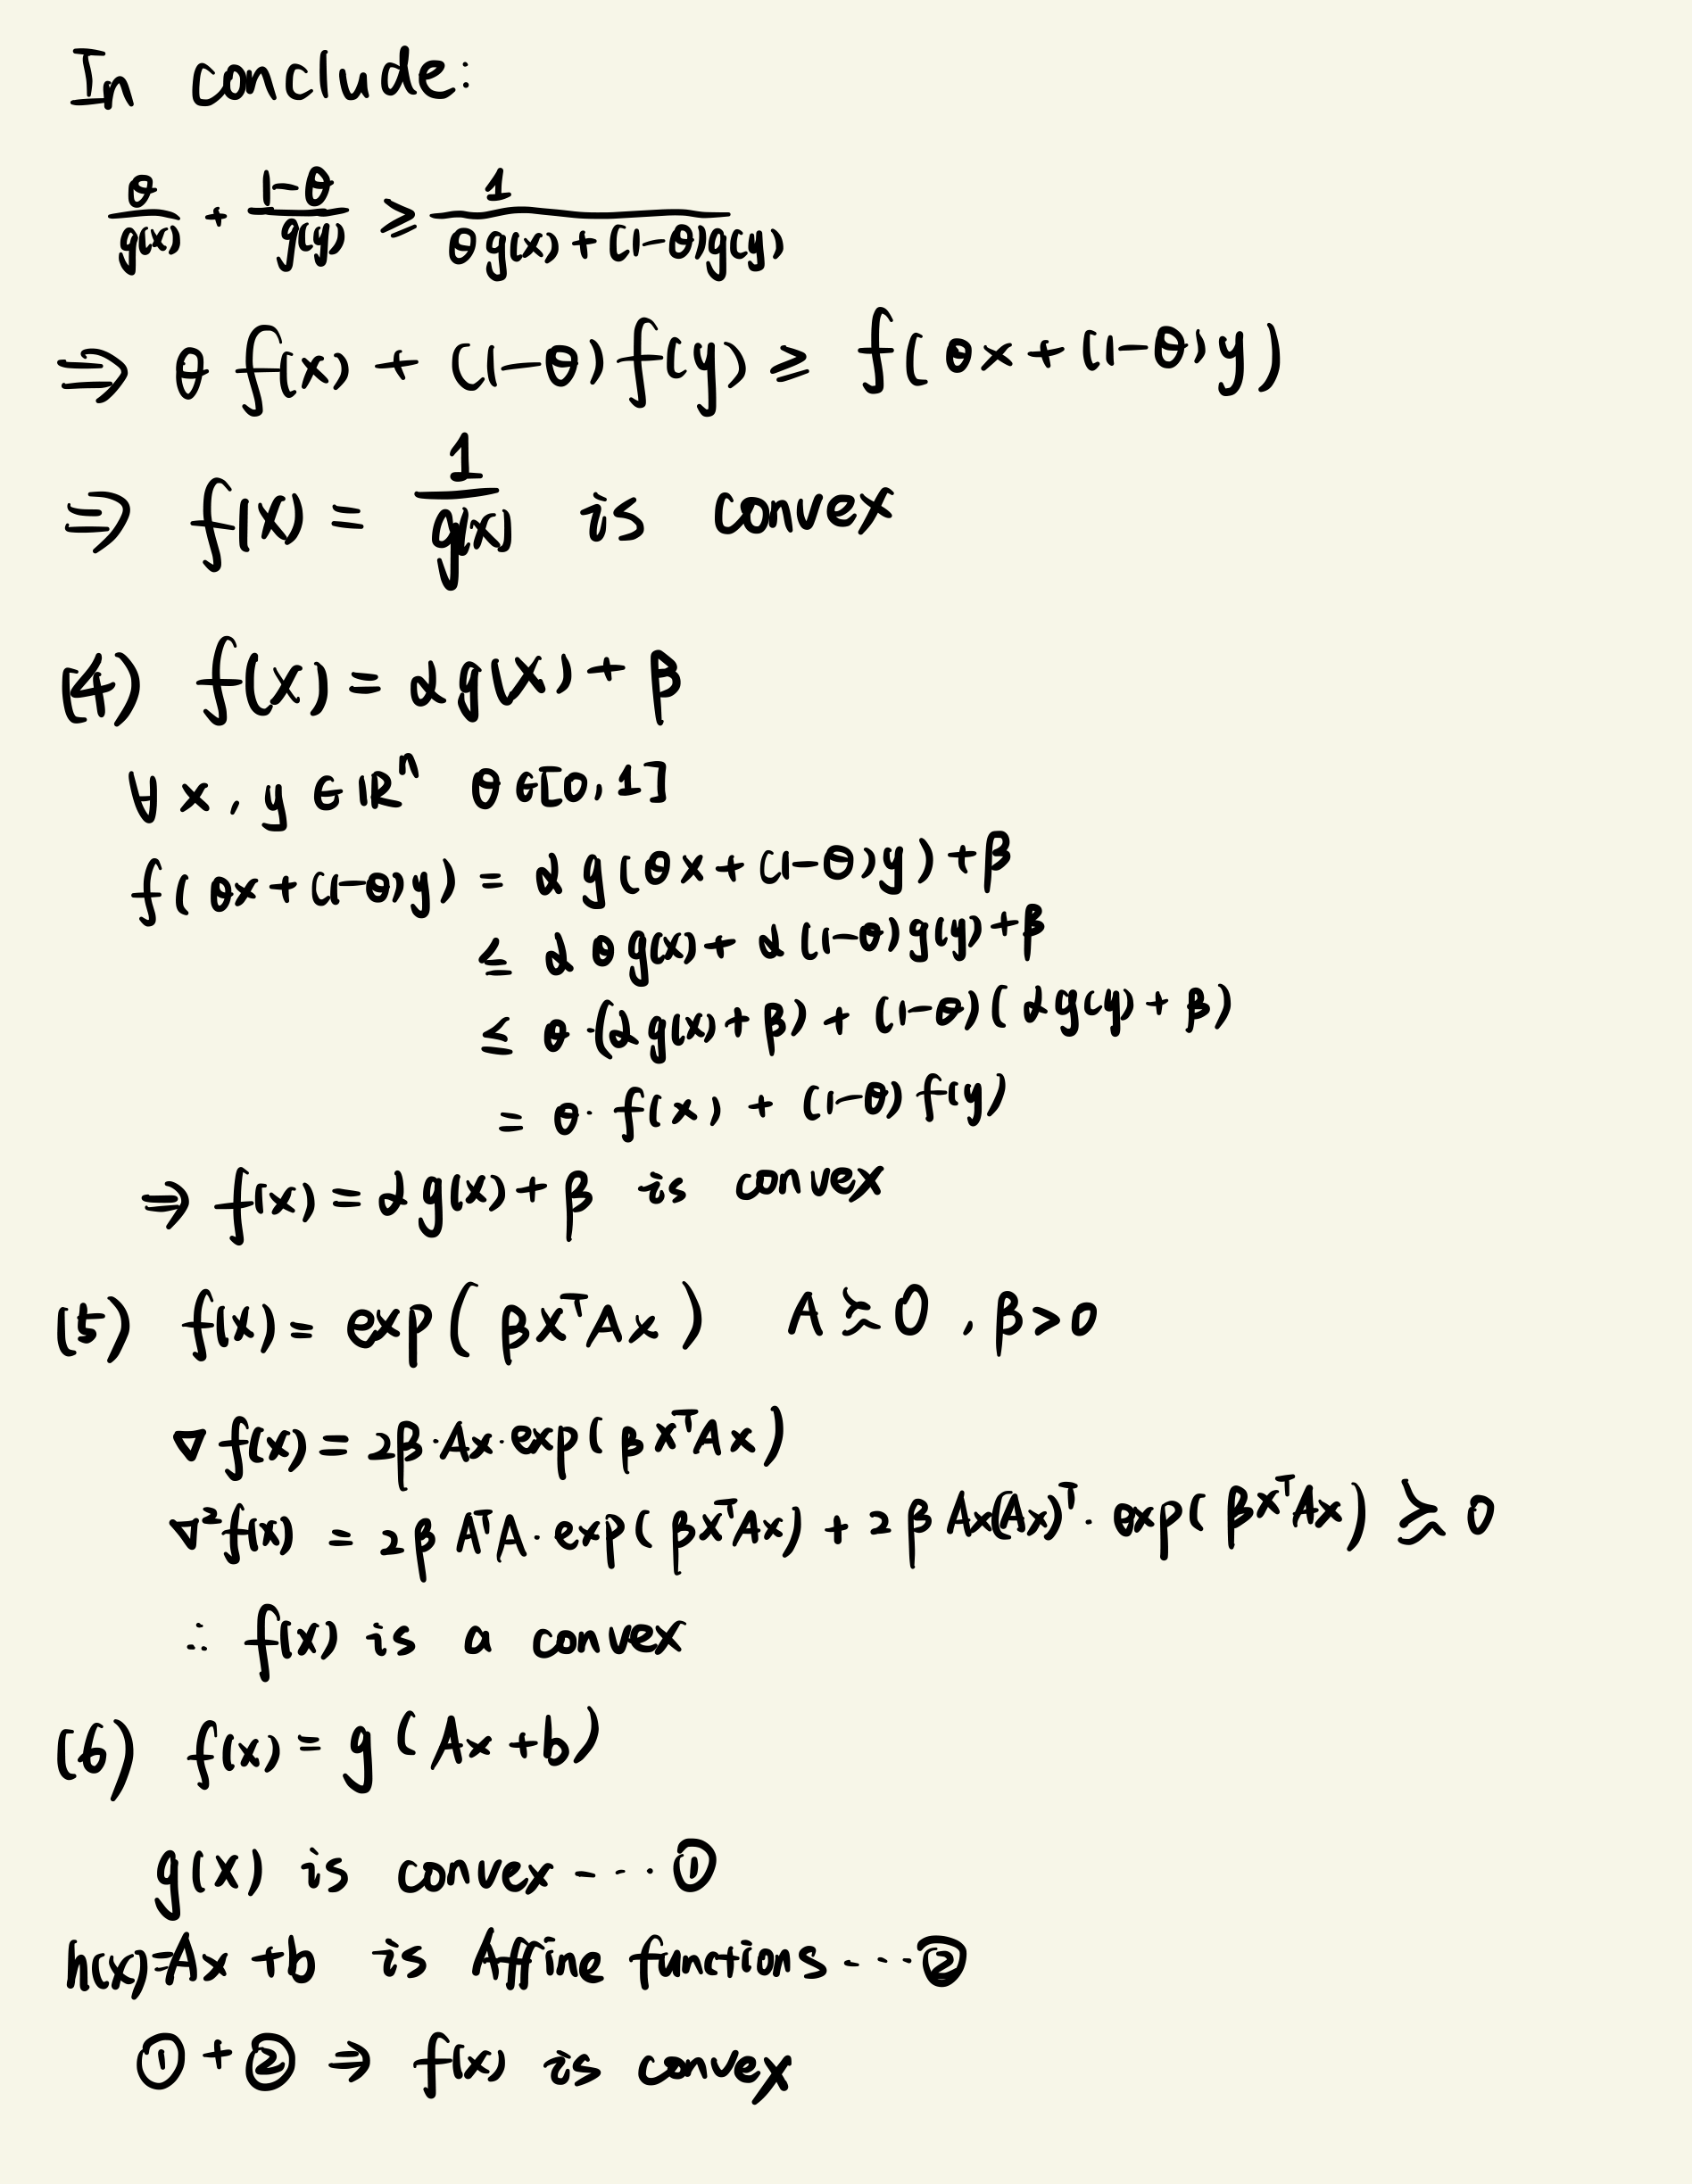 In conclude:
θ/g(x) + (1-θ)/g(y) ⩾ 1/(θg(x) + (1-θ)g(y))
⇒ θ f(x) + (1-θ) f(y) ⩾ f(θx + (1-θ)y)
⇒ f(x) = 1/g(x) is convex
(4) f(x) = αg(x) + β
∀ x, y ∈ ℝⁿ θ ∈ [0, 1]
f(θx + (1-θ)y) = αg(θx + (1-θ)y) + β
≤ αθg(x) + α(1-θ)g(y) + β
≤ θ·(αg(x) + β) + (1-θ)(αg(y) + β)
= θ· f(x) + (1-θ) f(y)
⇒ f(x) = αg(x) + β is convex
(5) f(x) = exp(βxᵀAx) A ≽ 0, β > 0
∇f(x) = 2β·Ax·exp(βxᵀAx)
∇²f(x) = 2β AᵀA·exp(βxᵀAx) + 2β Ax(Ax)ᵀ· exp(βxᵀAx) ≽ 0
∴ f(x) is a convex
(6) f(x) = g(Ax + b)
g(x) is convex --- ①
h(x)=Ax + b is Affine functions --- ②
① + ② ⇒ f(x) is convex